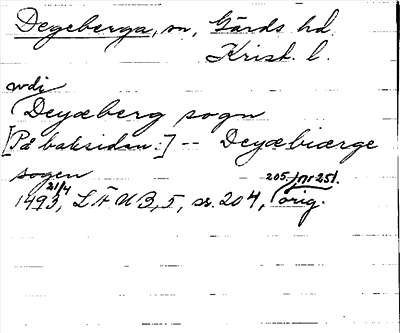 Degeberga, sn, Gärds hd.
Krist. l.
wdj
Deyæberg sogn
[På baksidan:] -- Deyæbiærge
sogen
1493 21/4, LÄUB, 5, sr. 204, 205, nr 251. orig.